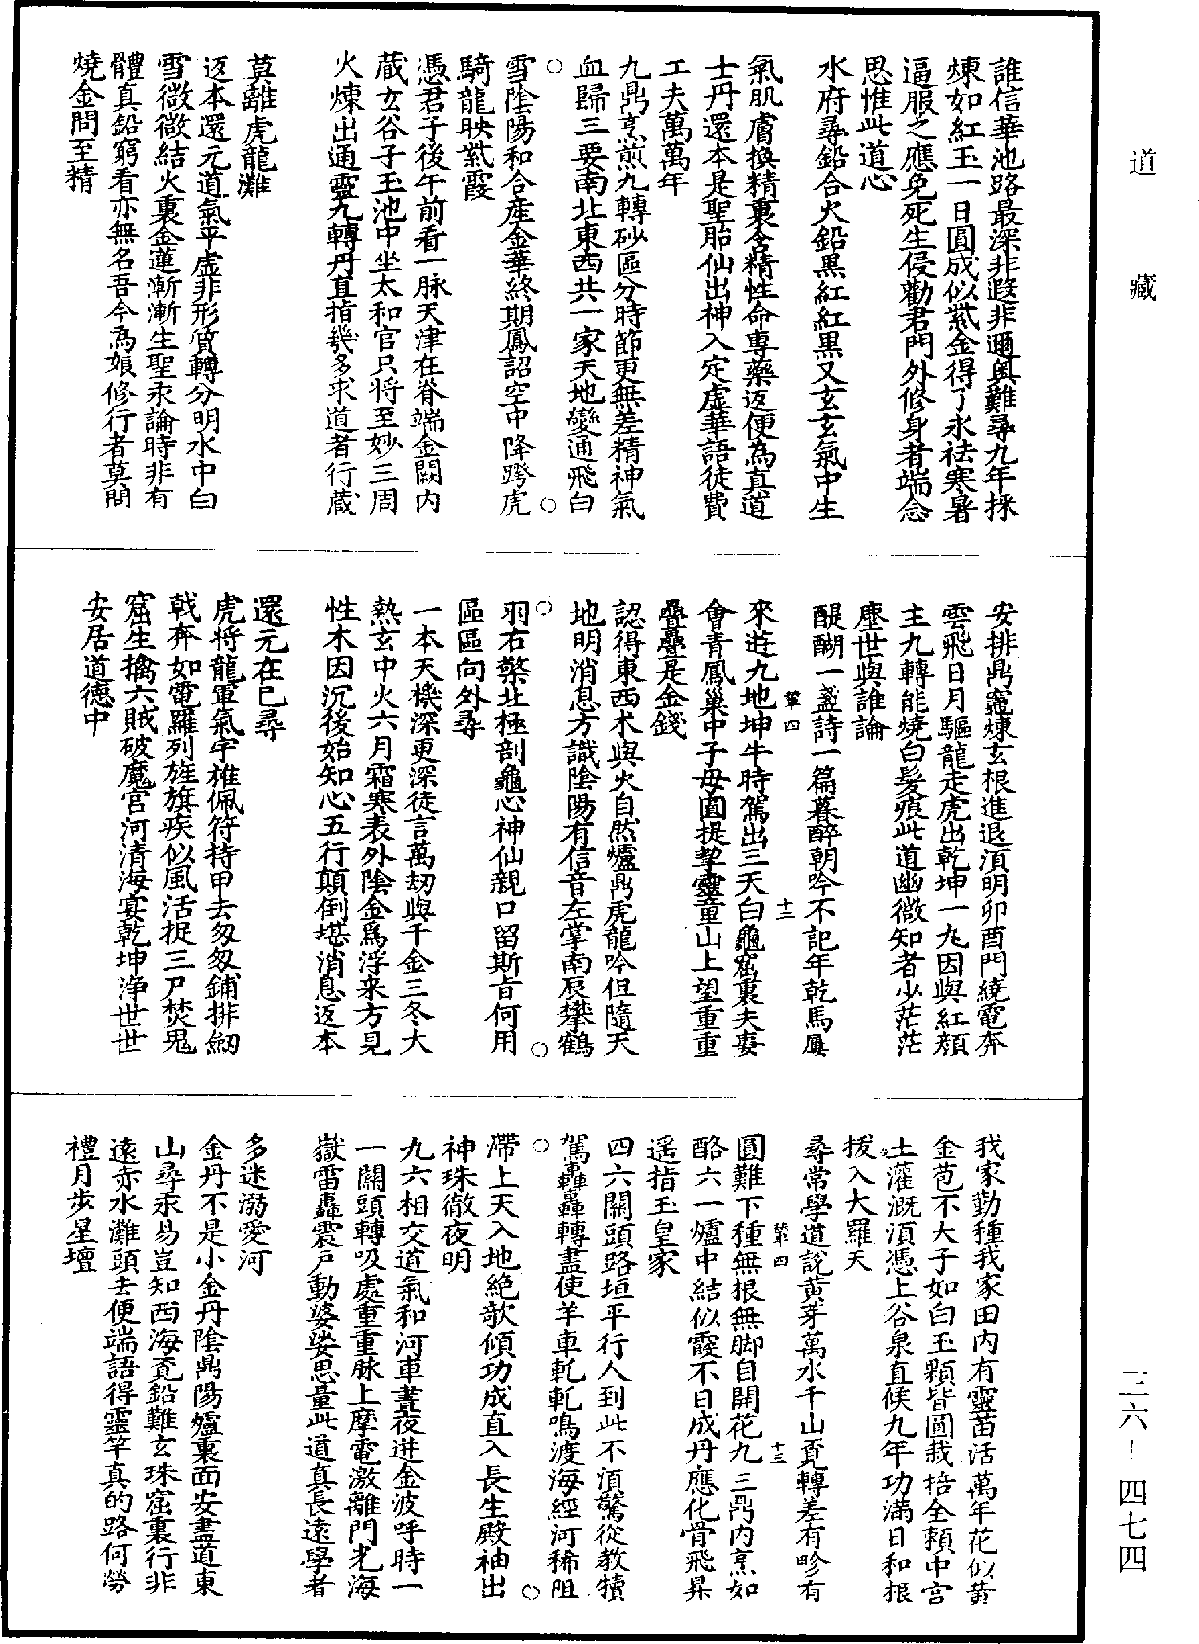 道藏
誰信華池路最深非遐非邇奧難尋九年採
煉如紅玉一日圓成似紫金得了永祛寒暑
逼服之應免死生侵勸君門外修身者端念
思惟此道心
水府尋鉛合火鉛黑紅紅黑又玄玄氣中生
氣肌膚換精裏含精性命專藥返便為真道
士丹還本是聖胎仙出神入定虛華語徒費
工夫萬萬年
九鼎烹煎九轉砂區分時節更無差精神氣
血歸三要南北東西共一家天地變通飛白
○
○
雪陰陽和合產金華終期鳳詔空中降跨虎
騎龍映紫霞
憑君子後午前看一脉天津在脊端金闕內
藏玄谷子玉池中坐太和官只將至妙三周
火煉出通靈九轉丹直指幾多求道者行藏
莫離虎龍灘
返本還元道氣平虛非形質轉分明水中白
雪微微結火裏金蓮漸漸生聖汞論時非有
體真鉛窮看亦無名吾今為娘修行者莫問
燒金問至精
安排鼎竈煉玄根進退湏明卯酉門繞電奔
雲飛日月驅龍走虎出乾坤一丸因與紅顏
主九轉能燒白髮痕此道幽微知者少茫茫
塵世與誰論
醍醐一盞詩一篇暮醉朝吟不記年乾馬屢
來遊九地坤牛時駕出三天白龜窟裏夫妻
會青鳳巢中子母圓提挈靈童山上望重重
疊疊是金錢
認得東西木與火自然爐鼎虎龍吟但隨天
地明消息方識陰陽有信音左掌南辰攀鶴
○
○
羽右擎北極剖龜心神仙親口留斯旨何用
區區向外尋
一本天機深更深徒言萬劫與千金三冬大
熱玄中火六月霜寒表外陰金為浮来方見
性木因沉後始知心五行顛倒堪消息返本
還元在己尋
虎將龍軍氣宇雄佩符持甲去匆匆鋪排劒
戟奔如電羅列旌旗疾似風活捉三尸焚鬼
窟生擒六賊破魔宮河清海宴乾坤浄世世
安居道德中
我家勤種我家田内有靈苗活萬年花似黃
金苞不大子如白玉顆皆圓栽培全頼中宫
土灌溉湏憑上谷泉直候九年功滿日和根
拔入大羅天
尋常學道說黃芽萬水千山覓轉差有畛有
圓難下種無根無脚自開花九三鼎内烹如
酪六一爐中結似霞不日成丹應化骨飛昇
遥指玉皇家
四六關頭路垣平行人到此不湏驚從教犢
駕轟轟轉盡使羊車軋軋鳴渡海經河稀阻
○
○
滯上天入地絶欹傾功成直入長生殿袖出
神珠徹夜明
九六相交道氣和河車晝夜迸金波呼時一
一關頭轉吸處重重脉上摩電激離門光海
嶽雷轟震戸動婆娑思量此道真長遠學者
多迷溺愛河
金丹不是小金丹陰鼎陽爐裏面安盡道東
山尋汞易豈知西海覓鉛難玄珠窟裏行非
遠赤水灘頭去便端語得靈竿真的路何勞
禮月步星壇
三六–四七四